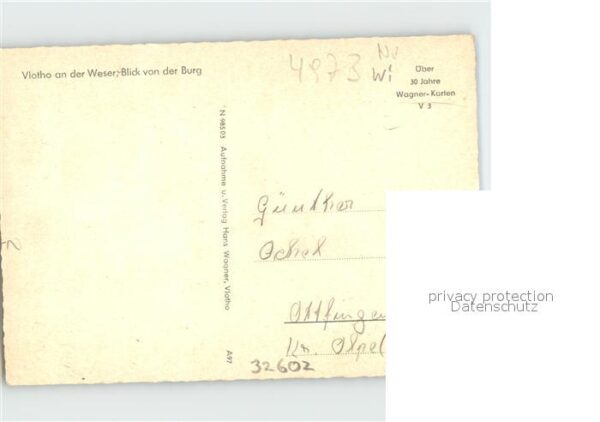 Vlotho an der Weser, Blick von der Burg
4973
Wi
Über
30 Jahre
Wagner-Karten
V 3
N 98503 Aufnahme u. Verlag Hans Wagner, Vlotho
A97
Günther
Ochel
Ottfingen
Kr. Olpe
32602
privacy protection
Datenschutz